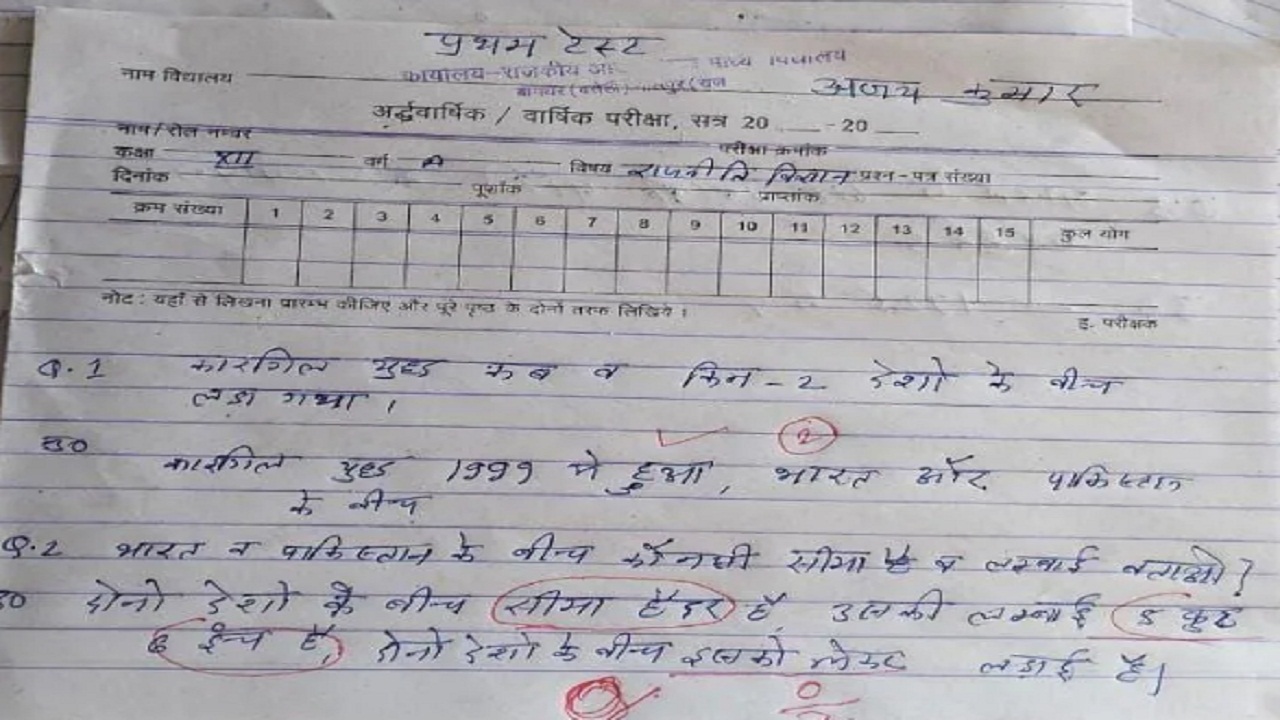 प्रथम टेस्ट
नाम विद्यालय कार्यालय-राजकीय विद्यालय
अजय कुमार
अर्द्धवार्षिक / वार्षिक परीक्षा, सत्र 20 ___ - 20 ___
नाम/रोल नम्बर परीक्षा क्रमांक
कक्षा XII वर्ग A विषय राजनीति विज्ञान प्रश्न-पत्र संख्या
दिनांक पूर्णांक प्राप्तांक
क्रम संख्या 1 2 3 4 5 6 7 8 9 10 11 12 13 14 15 कुल योग
नोट : यहाँ से लिखना प्रारम्भ कीजिए और पूरे पृष्ठ के दोनों तरफ लिखिये ।
ह. परीक्षक
Q.1 कारगिल युद्ध कब व किन-2 देशो के बीच
लड़ा गया ।
2
उ० कारगिल युद्ध 1999 मे हुआ, भारत और पाकिस्तान
के बीच
Q.2 भारत व पाकिस्तान के बीच कौनसी सीमा है व लम्बाई बताओ?
उ० दोनो देशो के बीच सीमा हैदर है, उसकी लम्बाई 5 फुट
6 ईन्च है, दोनो देशो के बीच इसको लेकर लड़ाई है।
0